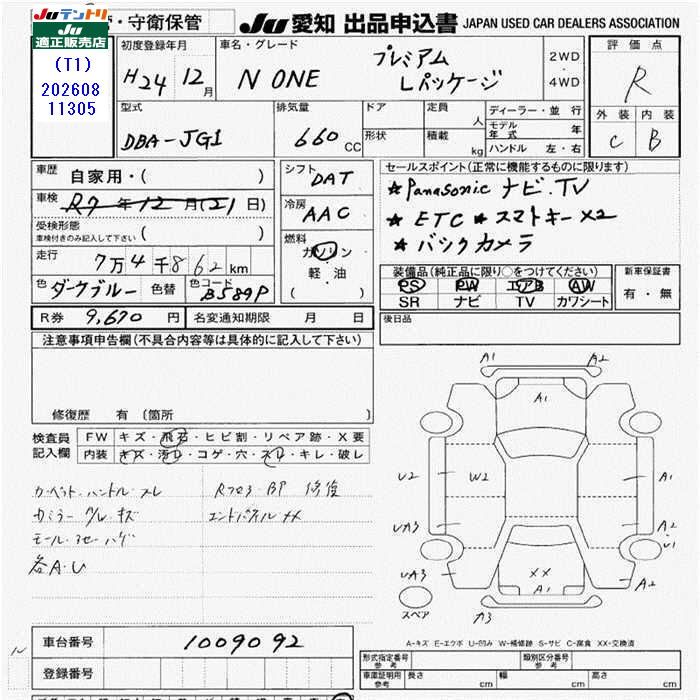 Juテントリ
Ju
適正販売店
(T1)
202608
11305
・守衛保管 Ju 愛知 出品申込書 JAPAN USED CAR DEALERS ASSOCIATION
初度登録年月 車名・グレード 2WD・4WD 評価点
H24 12月 N ONE プレミアム Lパッケージ R
外装 内装
C B
型式 排気量 ドア 定員 人 ディーラー・並行
DBA-JG1 660 CC 形状 積載 kg モデル年式 年
ハンドル 左・右
車歴 自家用・( ) シフト DAT
車検 R7年12月(21日) 冷房 AAC
受検形態 ( )
車検付きのみ記入して下さい
燃料 ガソリン
軽・油
( )
走行 7万4千862km
色 ダークブルー 色替 色コード B589P
セールスポイント(正常に機能するものに限ります)
★Panasonic ナビ.TV
★ETC ★スマトキー×2
★バックカメラ
装備品(純正品に限り○をつけてください) 新車保証書
PS PW エアB AW 有・無
SR ナビ TV カワシート
R券 9,670円 名変通知期限 月 日
後日品
注意事項申告欄(不具合内容等は具体的に記入して下さい)
修復歴 有 (箇所
検査員 FW キズ・飛石・ヒビ割・リペア跡・X要
記入欄 内装 キズ・汚レ・コゲ・穴・スレ・キレ・破レ
カーペット.ハンドル.スレ
モール
各A.U
修復
エンドパネルXX
A1 A2
A1
U2 W2 A1
UA3 A2 U1
UA3 XX A2
A1
スペア A3
A-キズ E-エクボ U-凹み W-補修跡 S-サビ C-腐食 XX-交換済
車台番号 1009092
登録番号
形式指定番号 参考 類別区分番号 参考
車庫証明用 参考 長さ cm 幅 cm 高さ cm